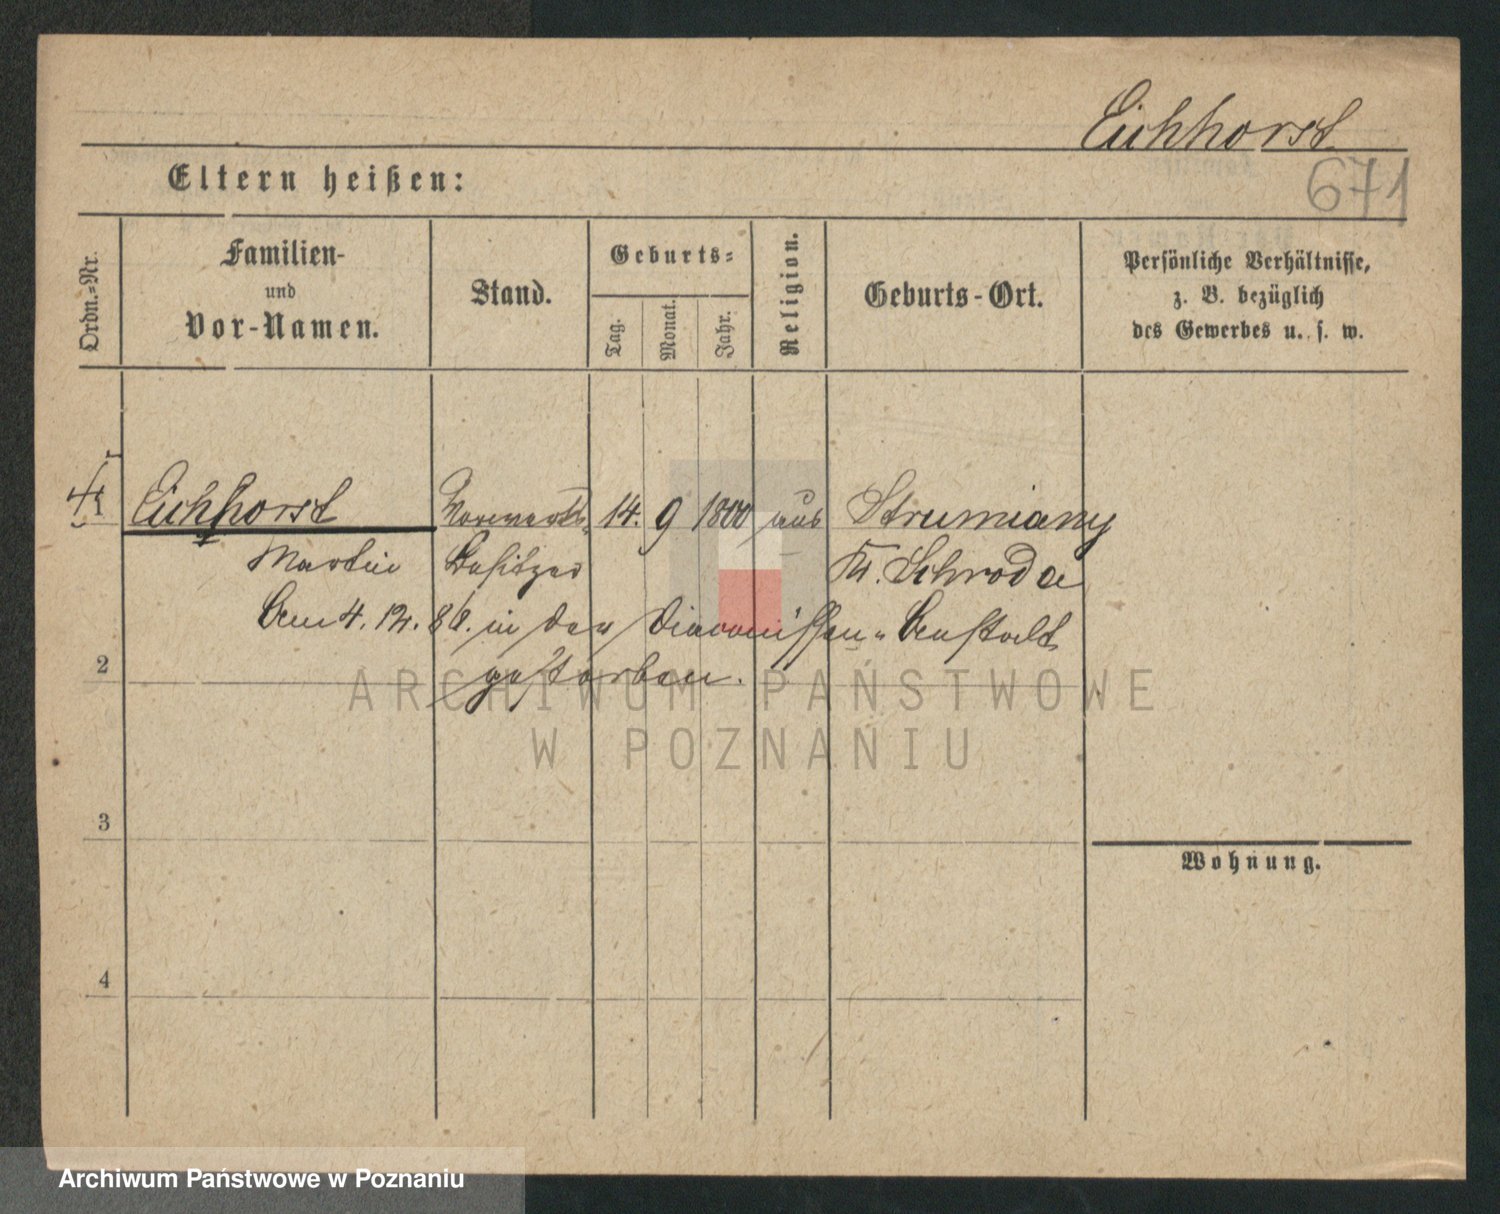 Eichhorst
671
Eltern heißen:
Ordn.=Nr.
Familien-
und
Vor-Namen.
Stand.
Geburts=
Tag.
Monat.
Jahr.
Religion.
Geburts-Ort.
Persönliche Verhältnisse,
z. B. bezüglich
des Gewerbes u. s. w.
Eichhorst Vorwerks- 14. 9 1800 aus Strumiany
Martin Besitzer Kr. Schroda
Am 4. 12. 88. in der Diaconissen-Anstalt
gestorben.
2
3
4
Wohnung.
ARCHIWUM PAŃSTWOWE
W POZNANIU
Archiwum Państwowe w Poznaniu